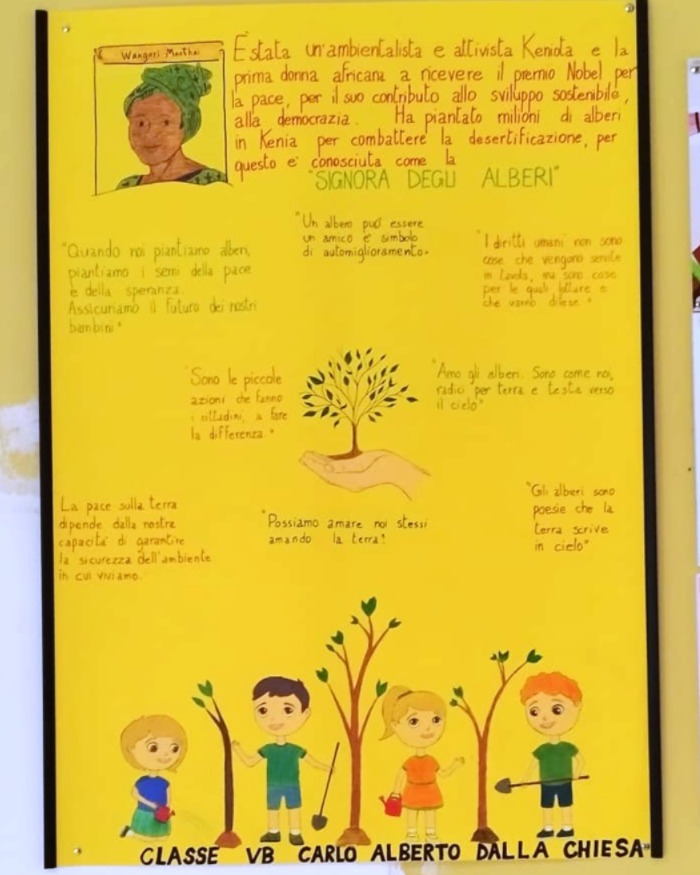 Wangari Maathai
È stata un'ambientalista e attivista Keniota e la
prima donna africana a ricevere il premio Nobel per
la pace, per il suo contributo allo sviluppo sostenibile,
alla democrazia. Ha piantato milioni di alberi
in Kenia per combattere la desertificazione, per
questo e' conosciuta come la
"SIGNORA DEGLI ALBERI"
"Un albero può essere
un amico e' simbolo
di automiglioramento"
"Quando noi piantiamo alberi,
piantiamo i semi della pace
e della speranza.
Assicuriamo il futuro dei nostri
bambini"
"I diritti umani non sono
cose che vengono servite
in tavola, ma sono cose
per le quali lottare e
che vanno difese"
"Sono le piccole
azioni che fanno
i cittadini, a fare
la differenza."
"Amo gli alberi. Sono come noi,
radici per terra e testa verso
il cielo"
La pace sulla terra
dipende dalla nostra
capacità di garantire
la sicurezza dell'ambiente
in cui viviamo.
"Possiamo amare noi stessi
amando la terra!
"Gli alberi sono
poesie che la
terra scrive
in cielo"
CLASSE VB CARLO ALBERTO DALLA CHIESA"